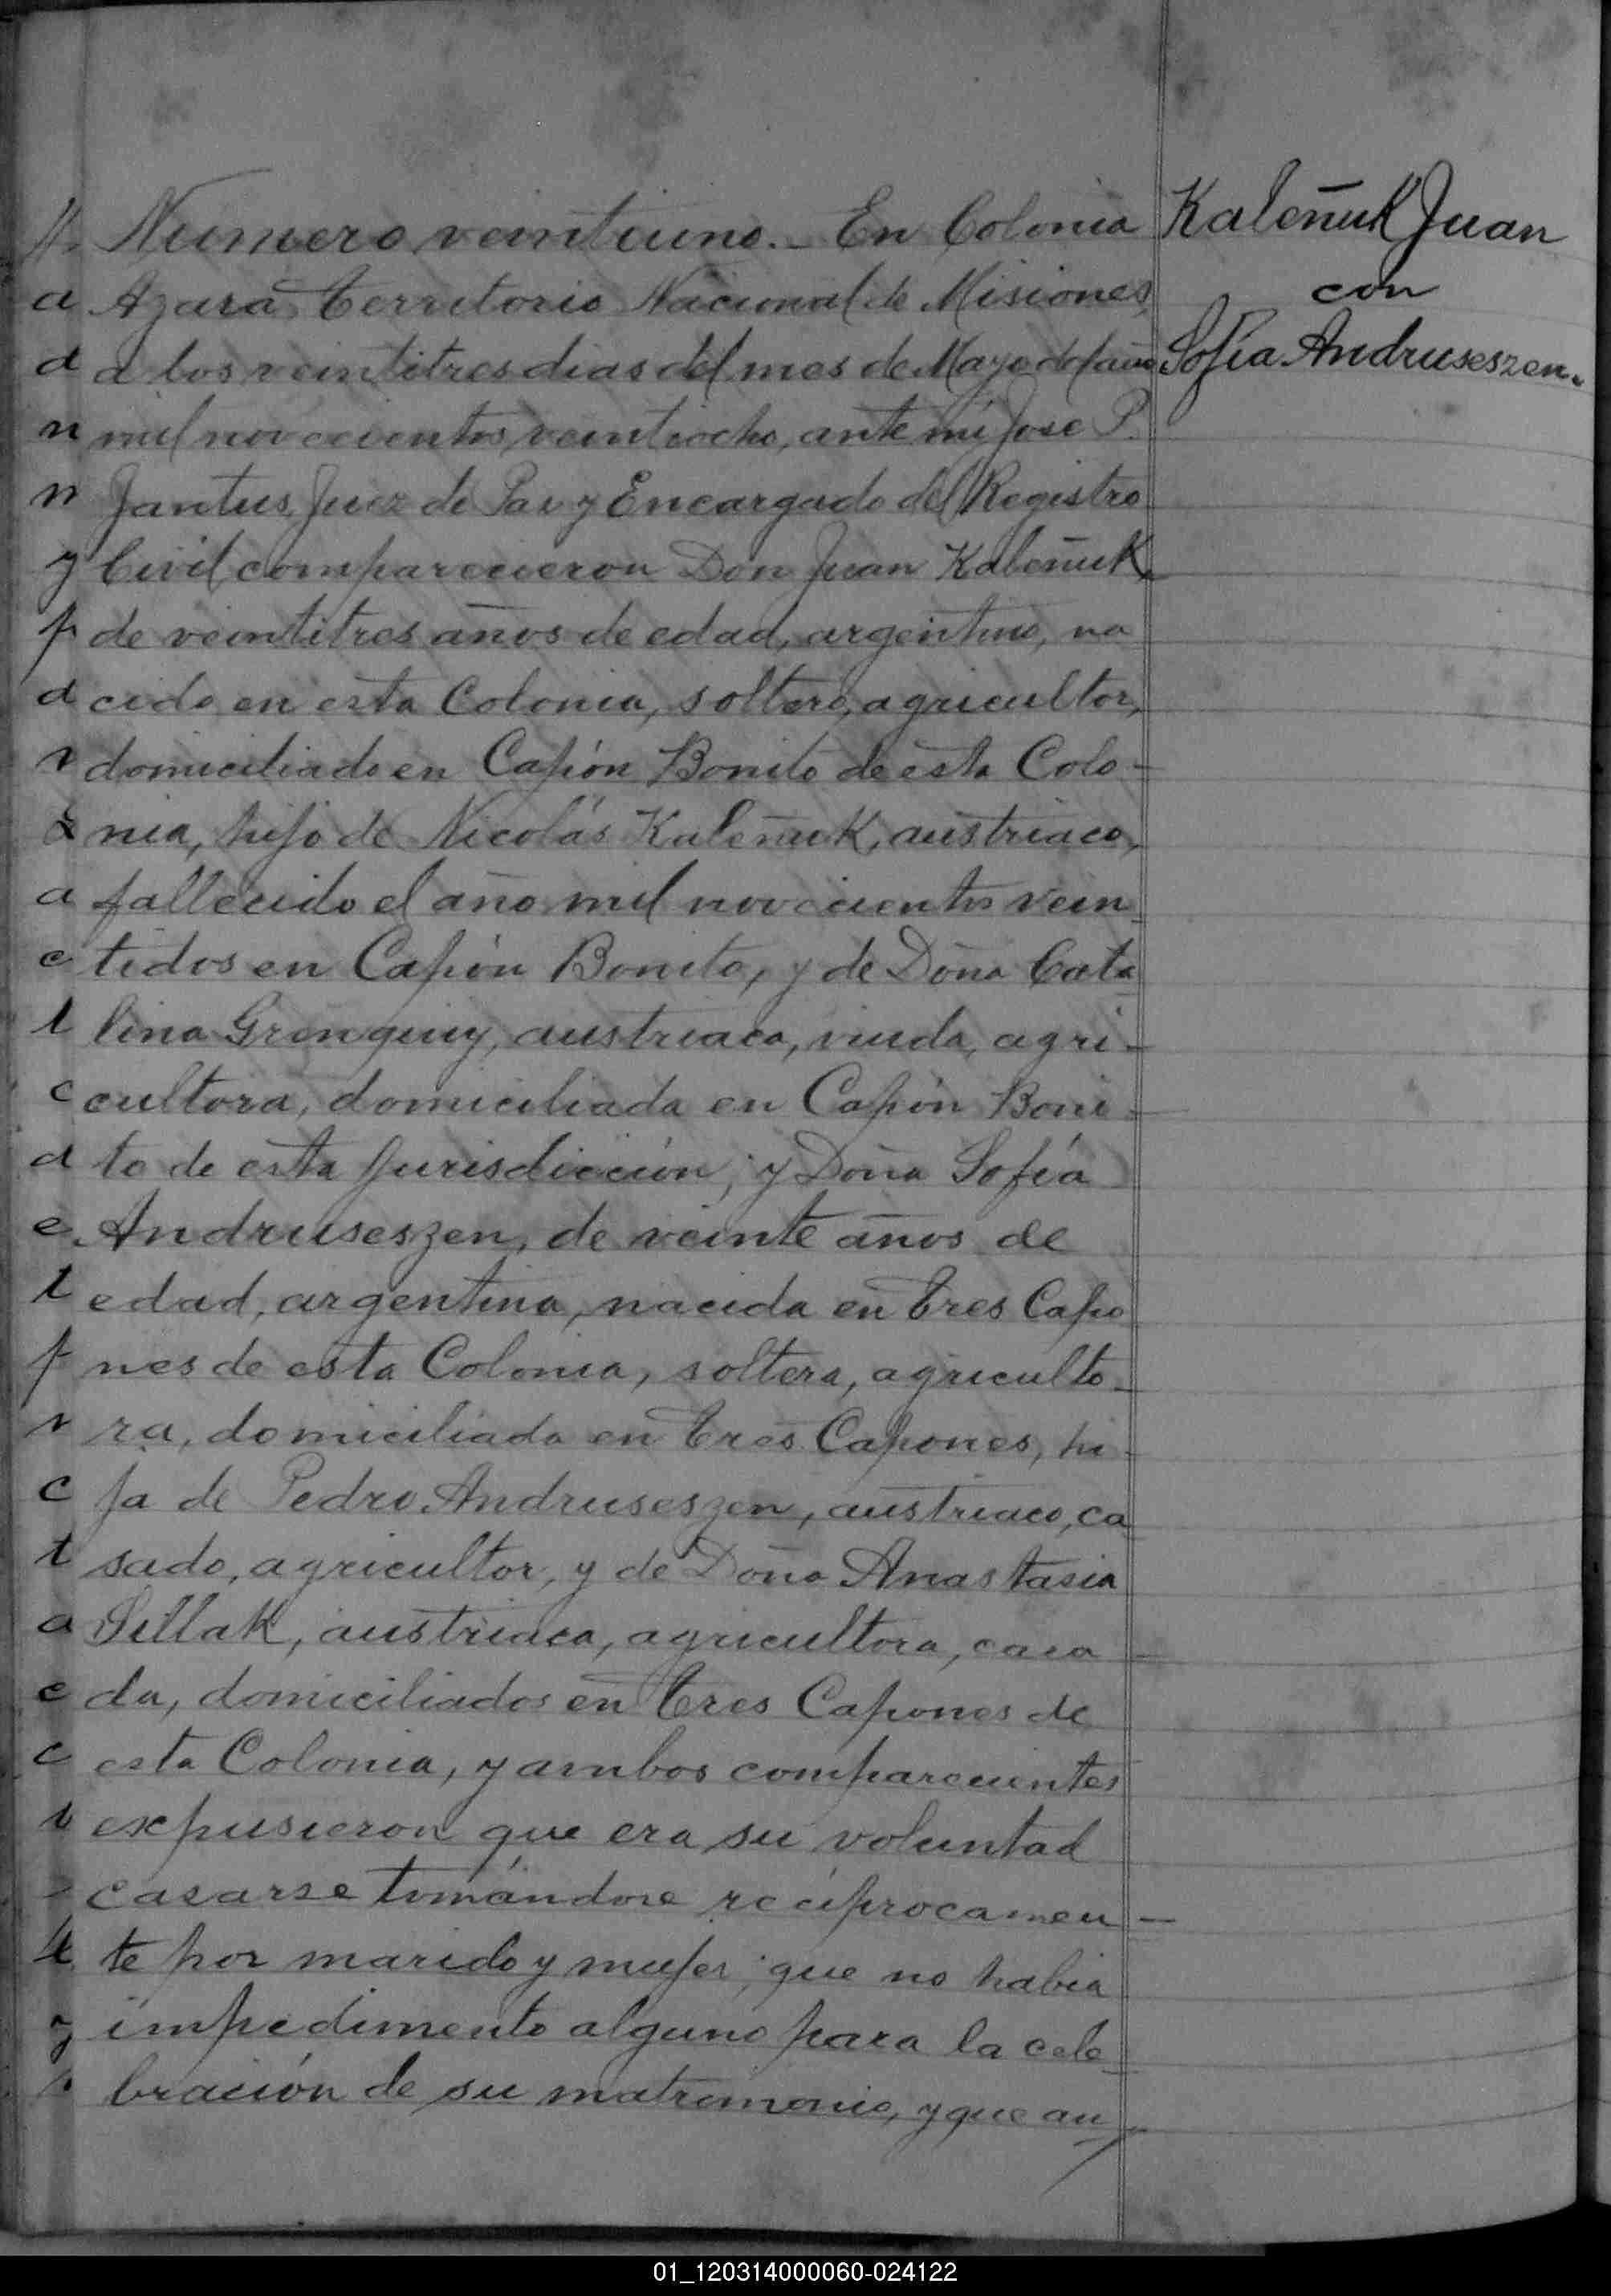 Numero veintiuno. _ En Colonia
Azara, Territorio Nacional de Misiones,
a los veintitres dias del mes de Mayo del año
mil novecientos veintiocho, ante mi José P.
Jantus, Juez de Paz y Encargado del Registro
Civil comparecieron Don Juan Kaleñuk,
de veintitres años de edad, argentino, na
cido en esta Colonia, soltero, agricultor,
domiciliado en Capón Bonito de esta Colo-
nia, hijo de Nicolás Kaleñuk, austriaco,
fallecido el año mil novecientos vein
tidos en Capón Bonito, y de Doña Cata
lina austriaca, viuda, agri-
cultora, domiciliada en Capón Boni-
to de esta Jurisdicción; y Doña Sofía
Andruseszen, de veinte años de
edad, argentina, nacida en Tres Capo
nes de esta Colonia, soltera, agriculto-
ra, domiciliada en Tres Capones, hi-
ja de Pedro Andruseszen, austriaco, ca
sado, agricultor, y de Doña Anastasia
austriaca, agricultora, casa-
da, domiciliados en Tres Capones de
esta Colonia, y ambos comparecientes
expusieron que era su voluntad
casarse tomándose recíprocamen-
te por marido y mujer; que no habia
impedimento alguno para la cele
bración de su matrimonio, y que au
Kaleñuk Juan
con
Sofía Andruseszen.
01_120314000060-024122